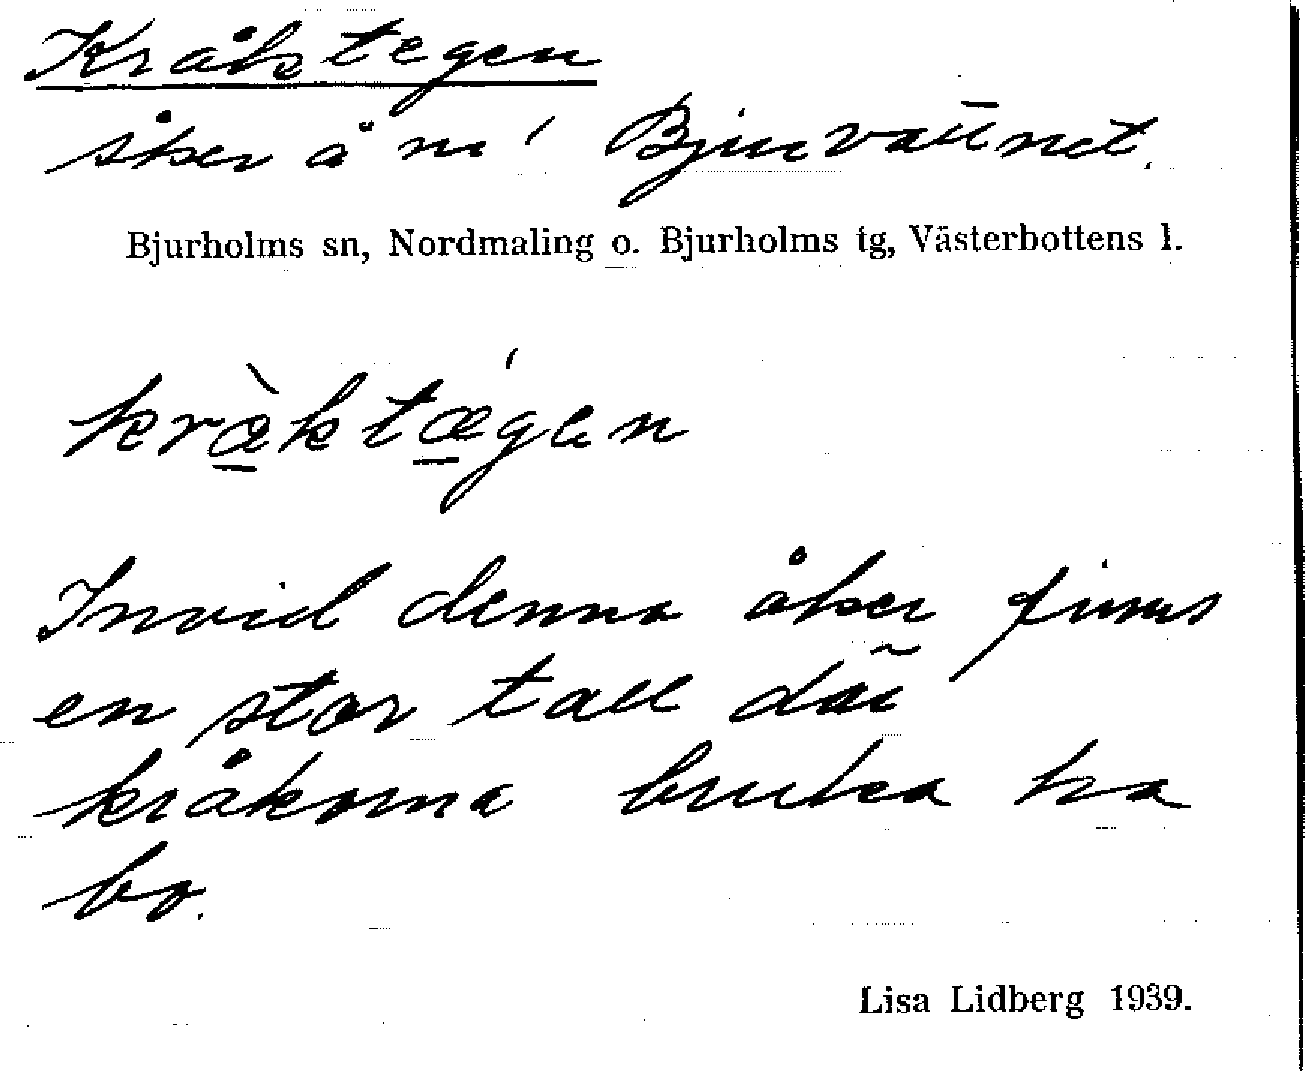 Kråktegen
åker å nr 1 Bjurvattnet.
Bjurholms sn, Nordmaling o. Bjurholms tg, Västerbottens l.
kræ̀ktǽgen
Invid denna åker finns
en stor tall där
kråkorna bruka ha
bo.
Lisa Lidberg 1939.